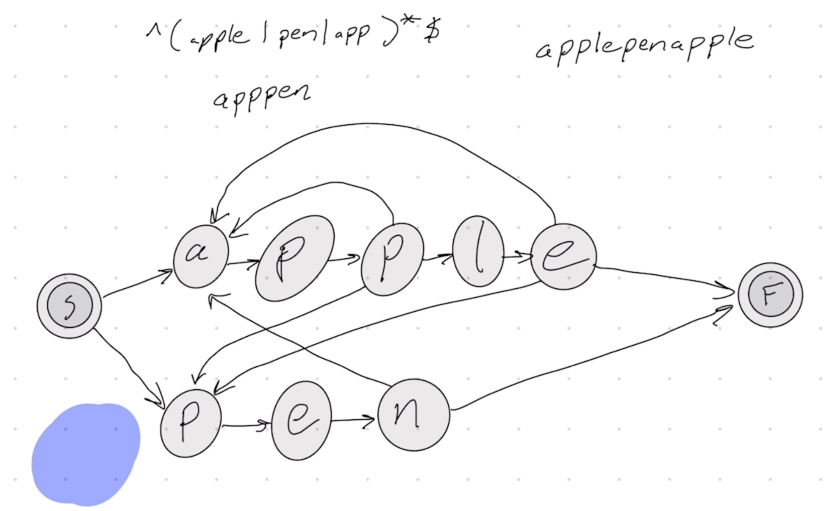 ^(apple|pen|app)*$
applepenapple
apppen
a p p l e
S
F
p e n